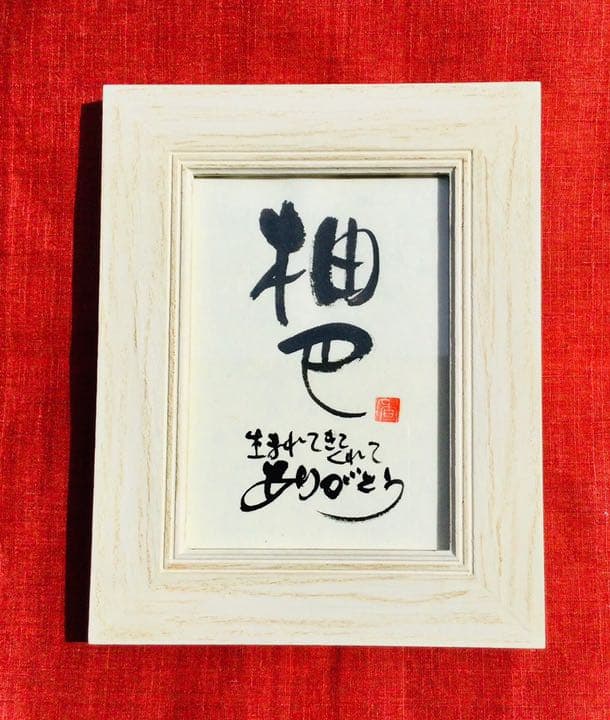 柚
巴
生まれてきてくれて
ありがとう